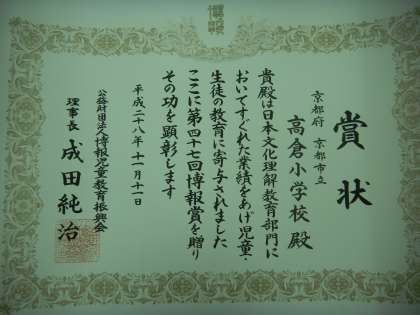 博報
賞状
京都府 京都市立
高倉小学校 殿
貴殿は日本文化理解教育部門に
おいてすぐれた業績をあげ児童・
生徒の教育に寄与されました
ここに第四十七回博報賞を贈り
その功を顕彰します
平成二十八年 十一月十一日
公益財団法人博報児童教育振興会
理事長 成田純治